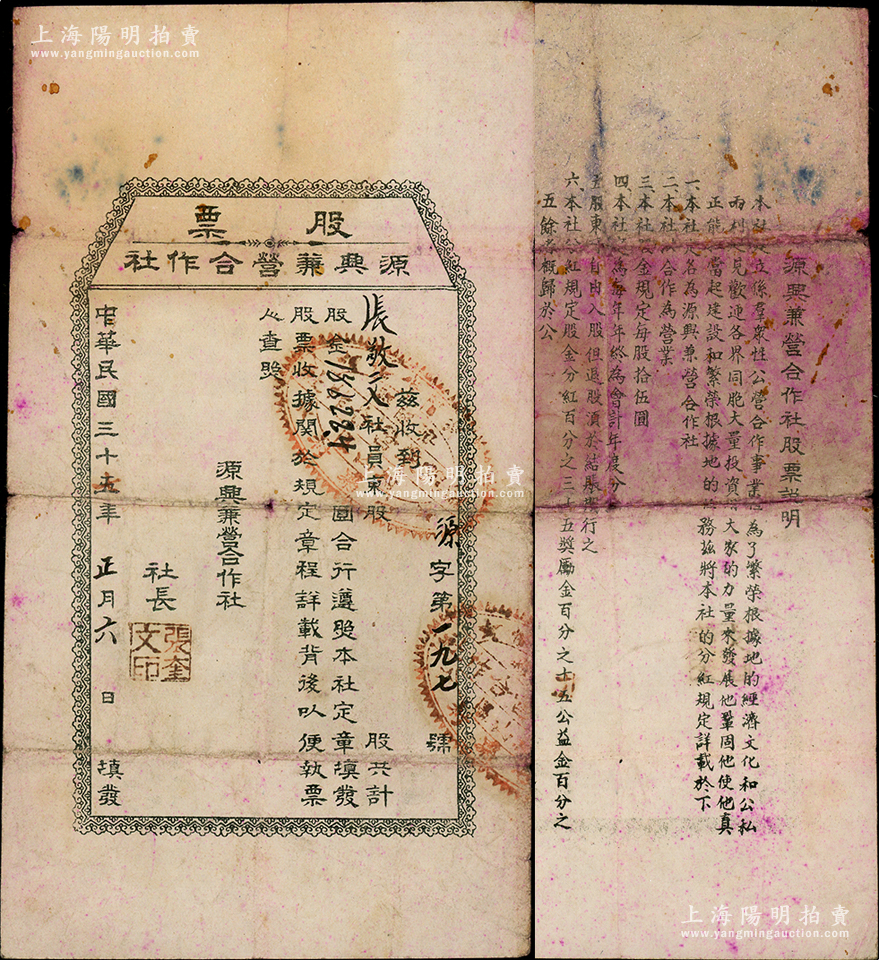 上海陽明拍賣
www.yangmingauction.com
股票
源興兼營合作社
源字第一九七號
茲收到
張敬文社員東股 股共計
股金 圓合行遵照本社定章填發
股票收據關於規定章程詳載背後以便執票
人查照
源興兼營合作社
社長
張奎文印
中華民國三十五年正月六日填發
源興兼營合作社股票說明
本社 立係群衆性公營合作事業 為了繁榮根據地的經濟文化和公私
兩利 見歡迎各界同胞大量投資 大家的力量來發展他鞏固他使他真
正能 當起建設和繁榮根據地的 務茲將本社的分紅規定詳載於下
一、本社 名為源興兼營合作社
二、本社 合作為營業
三、本社 金規定每股拾伍圓
四、本社 為每年年終為會計年度分
五、股東 自由入股但退股須於結賬 行之
六、本社 紅規定股金分紅百分之三十五獎勵金百分之十五公益金百分之
五餘 概歸於公
上海陽明拍賣
www.yangmingauction.com
上海陽明拍賣
www.yangmingauction.com